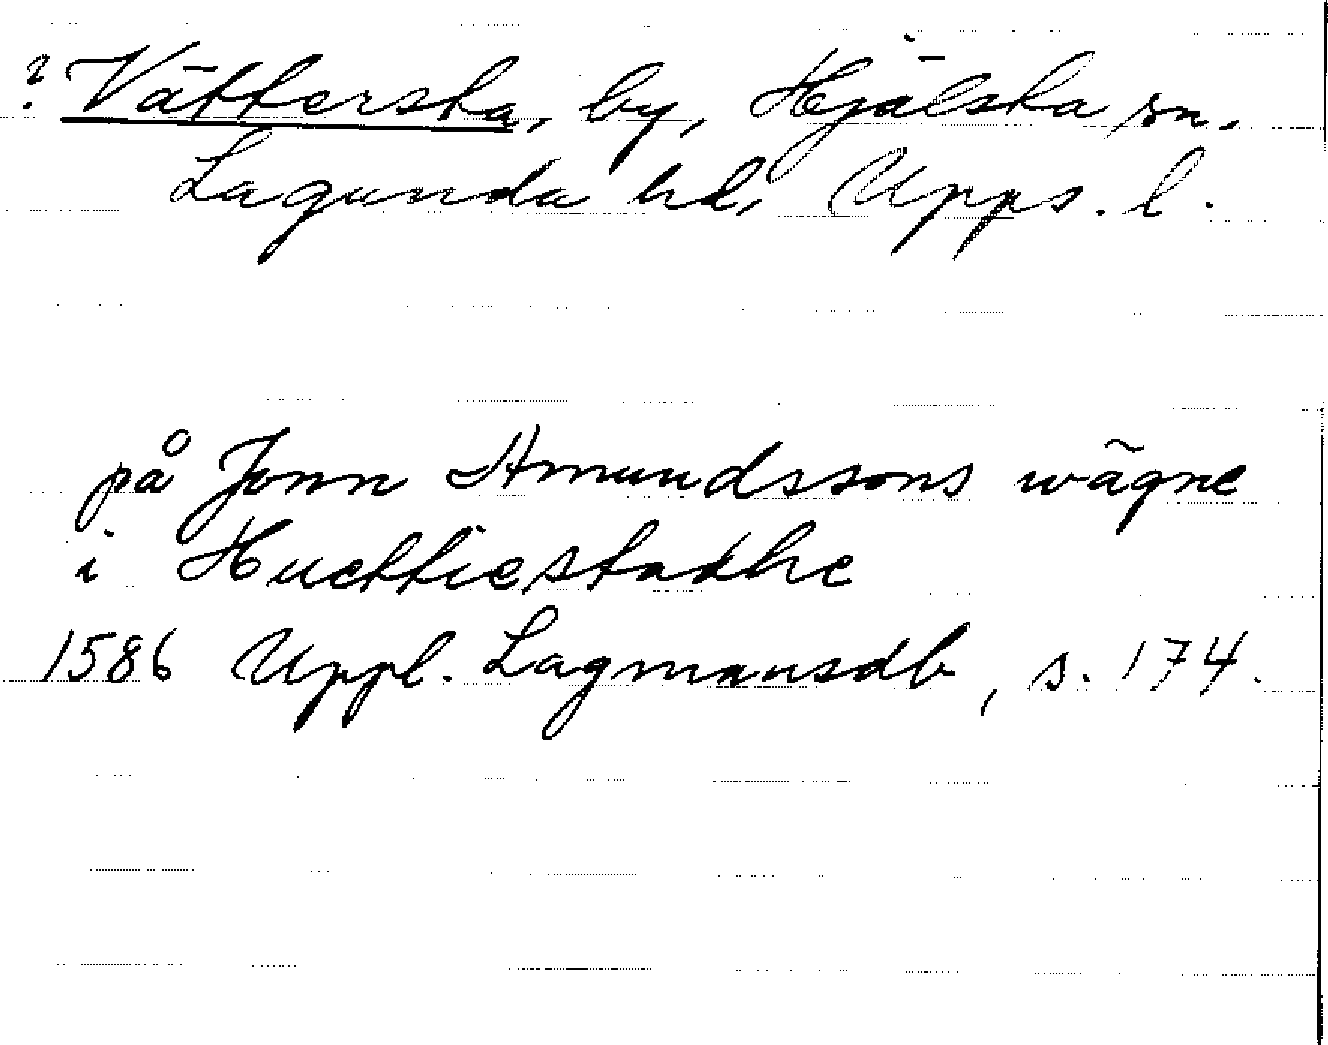 ? Vättersta, by, Hjälsta sn.
Lagunda hd, Upps. l.
på Jonn Amundssons wägne
i Huettiestadhe
1586 Uppl. Lagmansdb, s. 174.